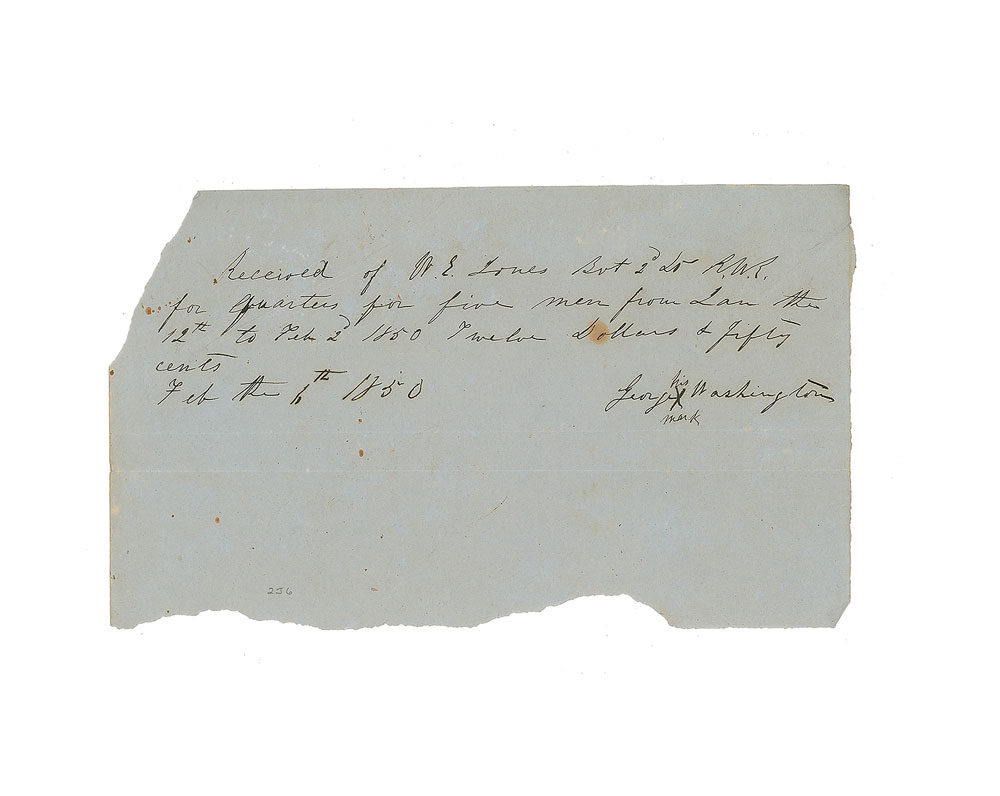 Received of W. E. Jones Bvt 2d Lt R.W.R.
for quarters for five men from Jan the
12th to Feb 2d 1850 Twelve Dollars & fifty
cents
Feb the 6th 1850 George his X mark Washington
256